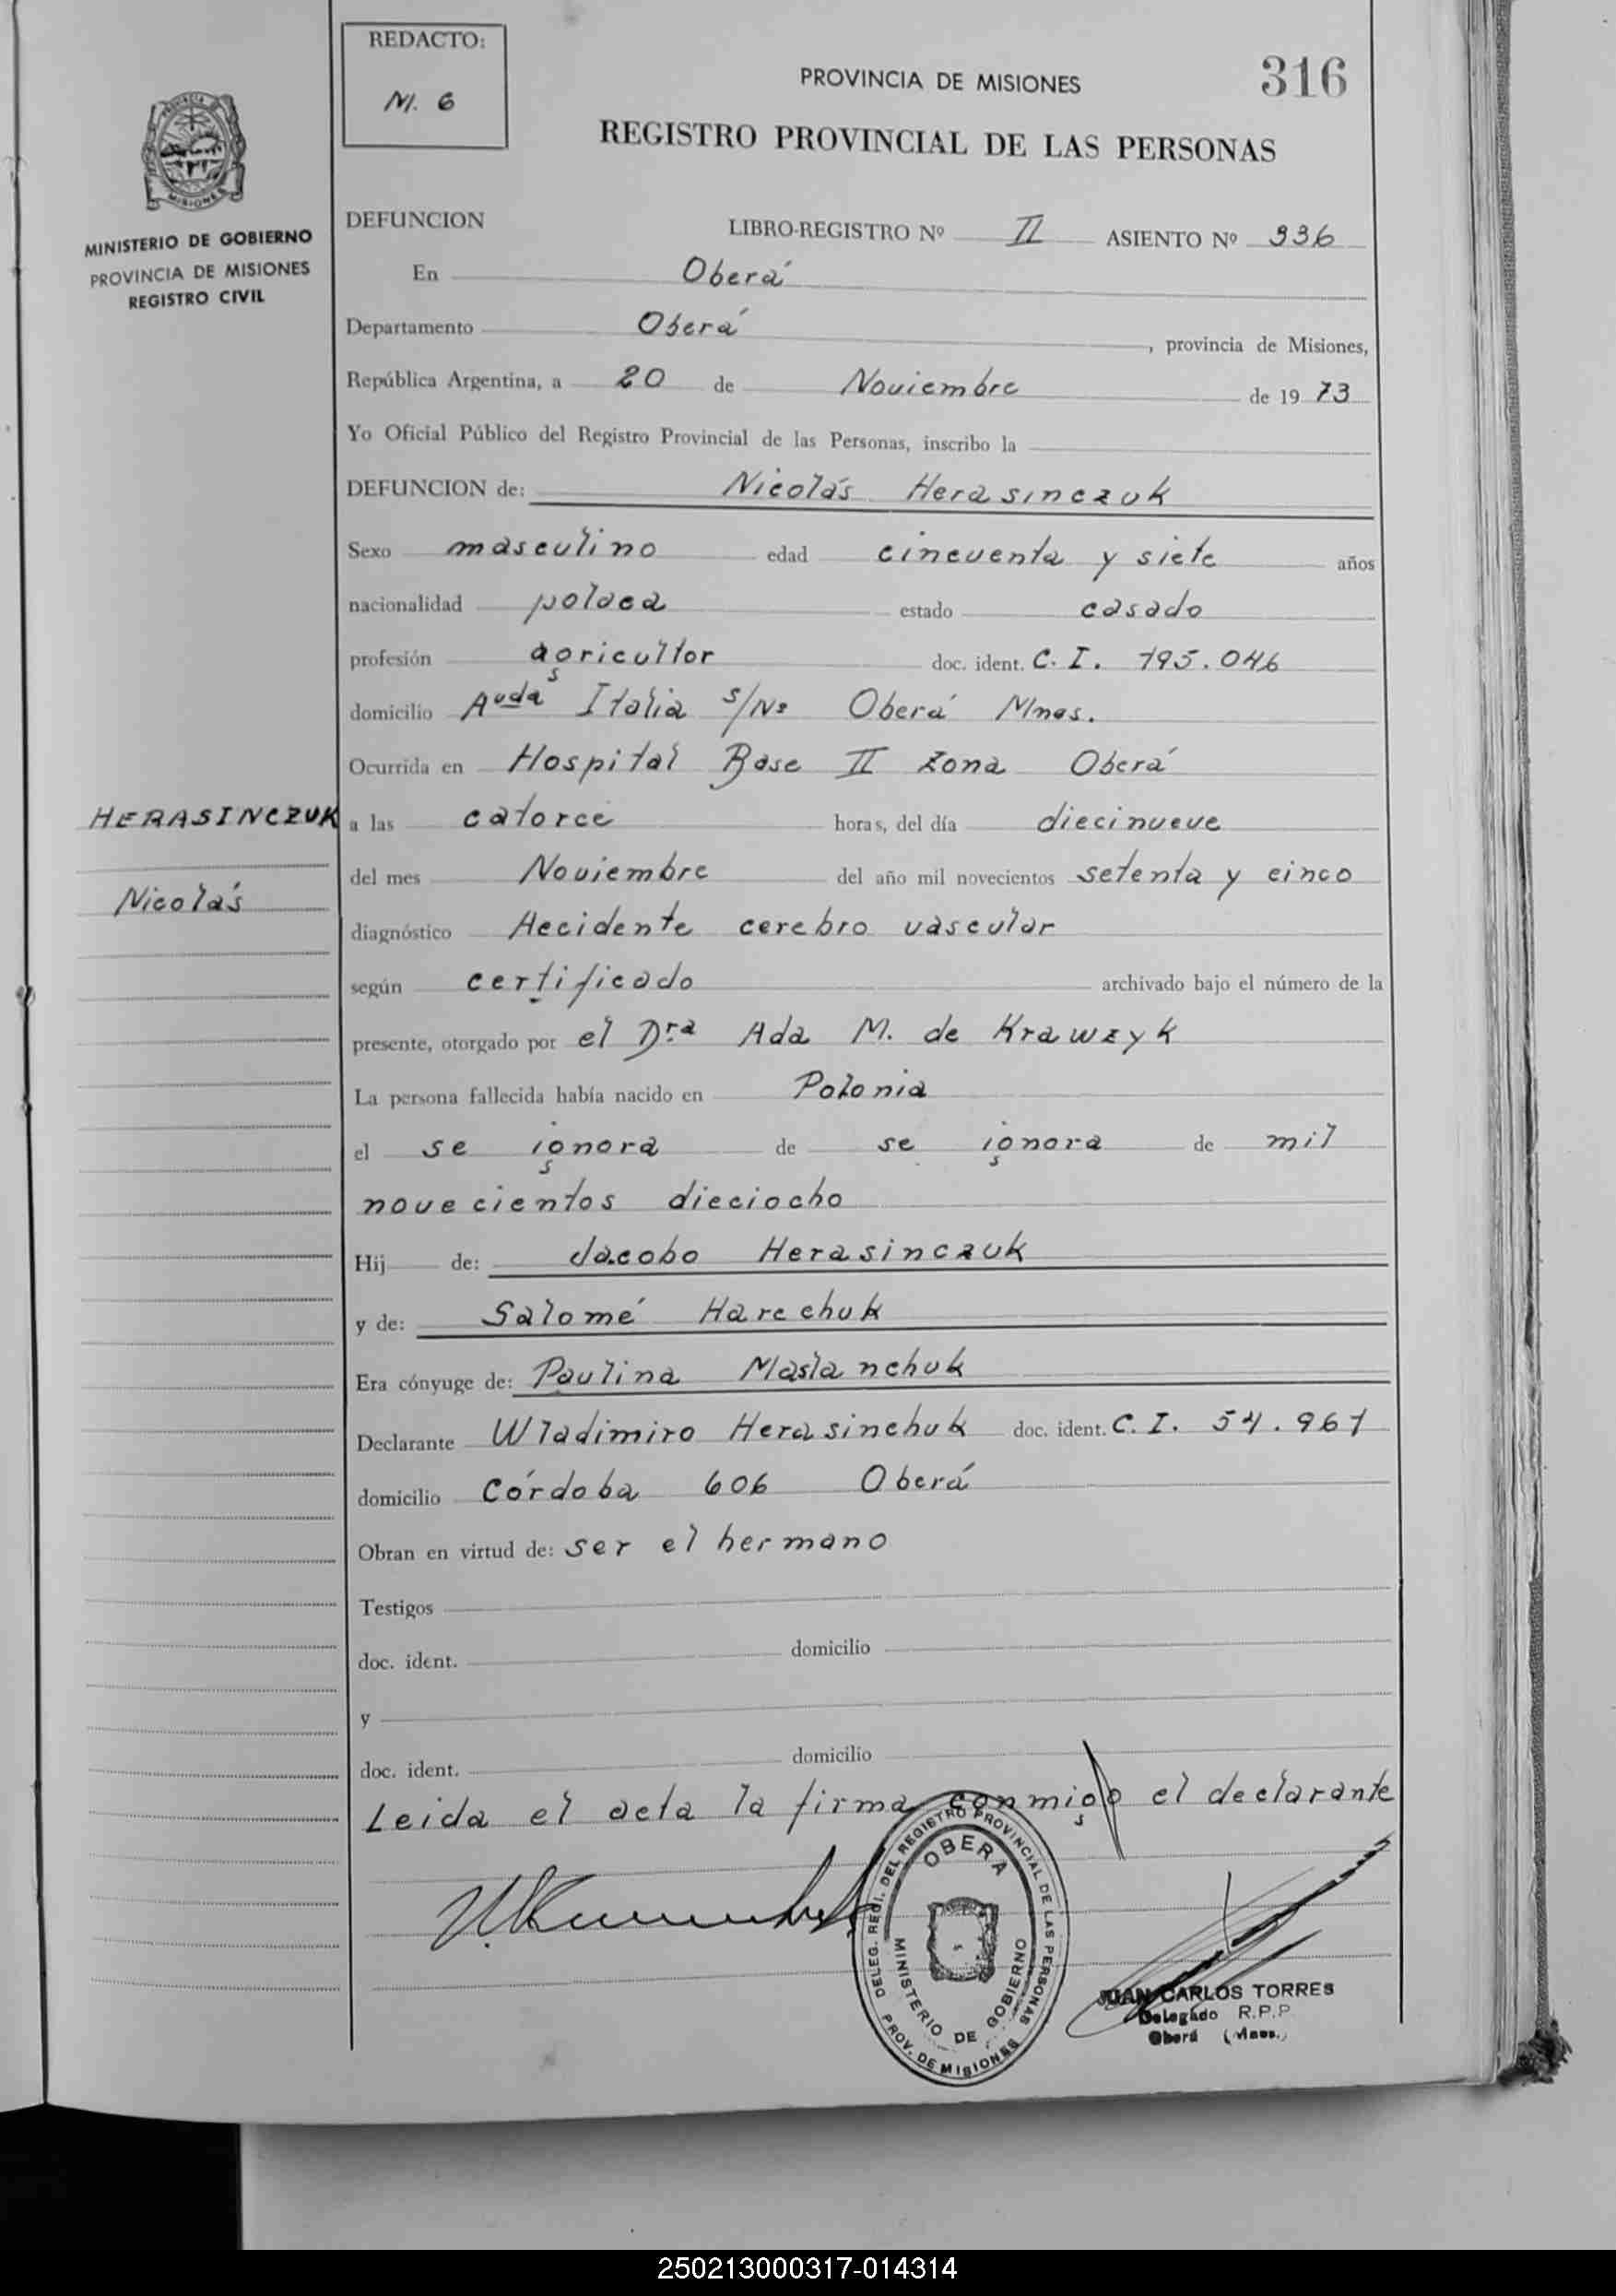 REDACTO:
N. 6
316
PROVINCIA DE MISIONES
REGISTRO PROVINCIAL DE LAS PERSONAS
MISIONES
MINISTERIO DE GOBIERNO
PROVINCIA DE MISIONES
REGISTRO CIVIL
DEFUNCION LIBRO-REGISTRO Nº II ASIENTO Nº 336
En Oberá
Departamento Oberá, provincia de Misiones,
República Argentina, a 20 de Noviembre de 19 73
Yo Oficial Público del Registro Provincial de las Personas, inscribo la
DEFUNCION de: Nicolás Herasinczuk
Sexo masculino edad cincuenta y siete años
nacionalidad polaca estado casado
profesión agricultor doc. ident. C. I. 195.046
domicilio Avda Italia s/Nº Oberá Mnes.
Ocurrida en Hospital Base II Zona Oberá
HERASINCZUK
Nicolás
a las catorce horas, del día diecinueve
del mes Noviembre del año mil novecientos setenta y cinco
diagnóstico Accidente cerebro vascular
según certificado archivado bajo el número de la
presente, otorgado por el Dra Ada M. de Krawzyk
La persona fallecida había nacido en Polonia
el se ignora de se ignora de mil
novecientos dieciocho
Hij de: Jacobo Herasinczuk
y de: Salomé Harechuk
Era cónyuge de: Paulina Maslanchuk
Declarante Wladimiro Herasinchuk doc. ident. C. I. 54.961
domicilio Córdoba 606 Oberá
Obran en virtud de: ser el hermano
Testigos
doc. ident. domicilio
y
doc. ident. domicilio
Leida el acta la firma conmigo el declarante
DELEG. REGI. DEL REGISTRO PROVINCIAL DE LAS PERSONAS
OBERA
MINISTERIO DE GOBIERNO
PROV. DE MISIONES
JUAN CARLOS TORRES
Delegado R.P.P
Oberá (Mnes.)
250213000317-014314